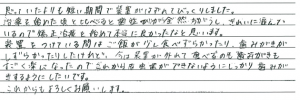 思っていたよりも短い期間で装置がはずれてびっくりしました。
治療を始めた頃とくらべると歯並びが全然ちがうし、きれいに並んでい
るので矯正治療を始めて本当に良かったなと思います。
装置をつけている間はご飯が少し食べずらかったり、歯みがきが
しずらかったりしたけれど、今は装置が外れて食べるのも歯みがきも
すごく楽になったので これからも虫歯ができないようにしっかり歯みがき
をするようにしたいです。
これからもよろしくお願いします。